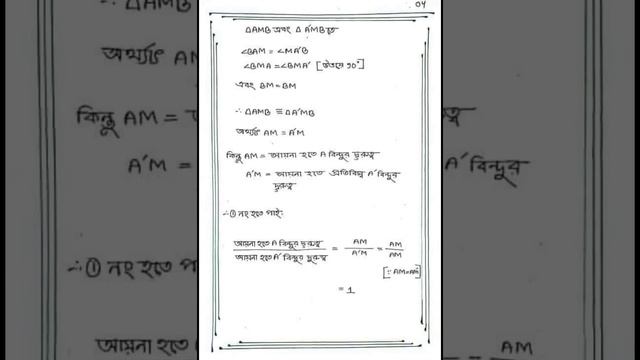 04
△AMB এবং △A′MB তে
∠BAM = ∠MA′B
∠BMA = ∠BMA′ [উভয়ে 90°]
এবং BM = BM
∴ △AMB ≅ △A′MB
অর্থ্যাৎ AM = A′M
কিন্তু AM = আয়না হতে A বিন্দুর দুরুত্ব
A′M = আয়না হতে প্রতিবিম্ব A′ বিন্দুর
দুরুত্ব
∴ ① নং হতে পাই:
আয়না হতে A বিন্দুর দুরুত্ব / আয়না হতে A′ বিন্দুর দুরুত্ব = AM / A′M = AM / AM
[∵ AM=A′M]
= 1